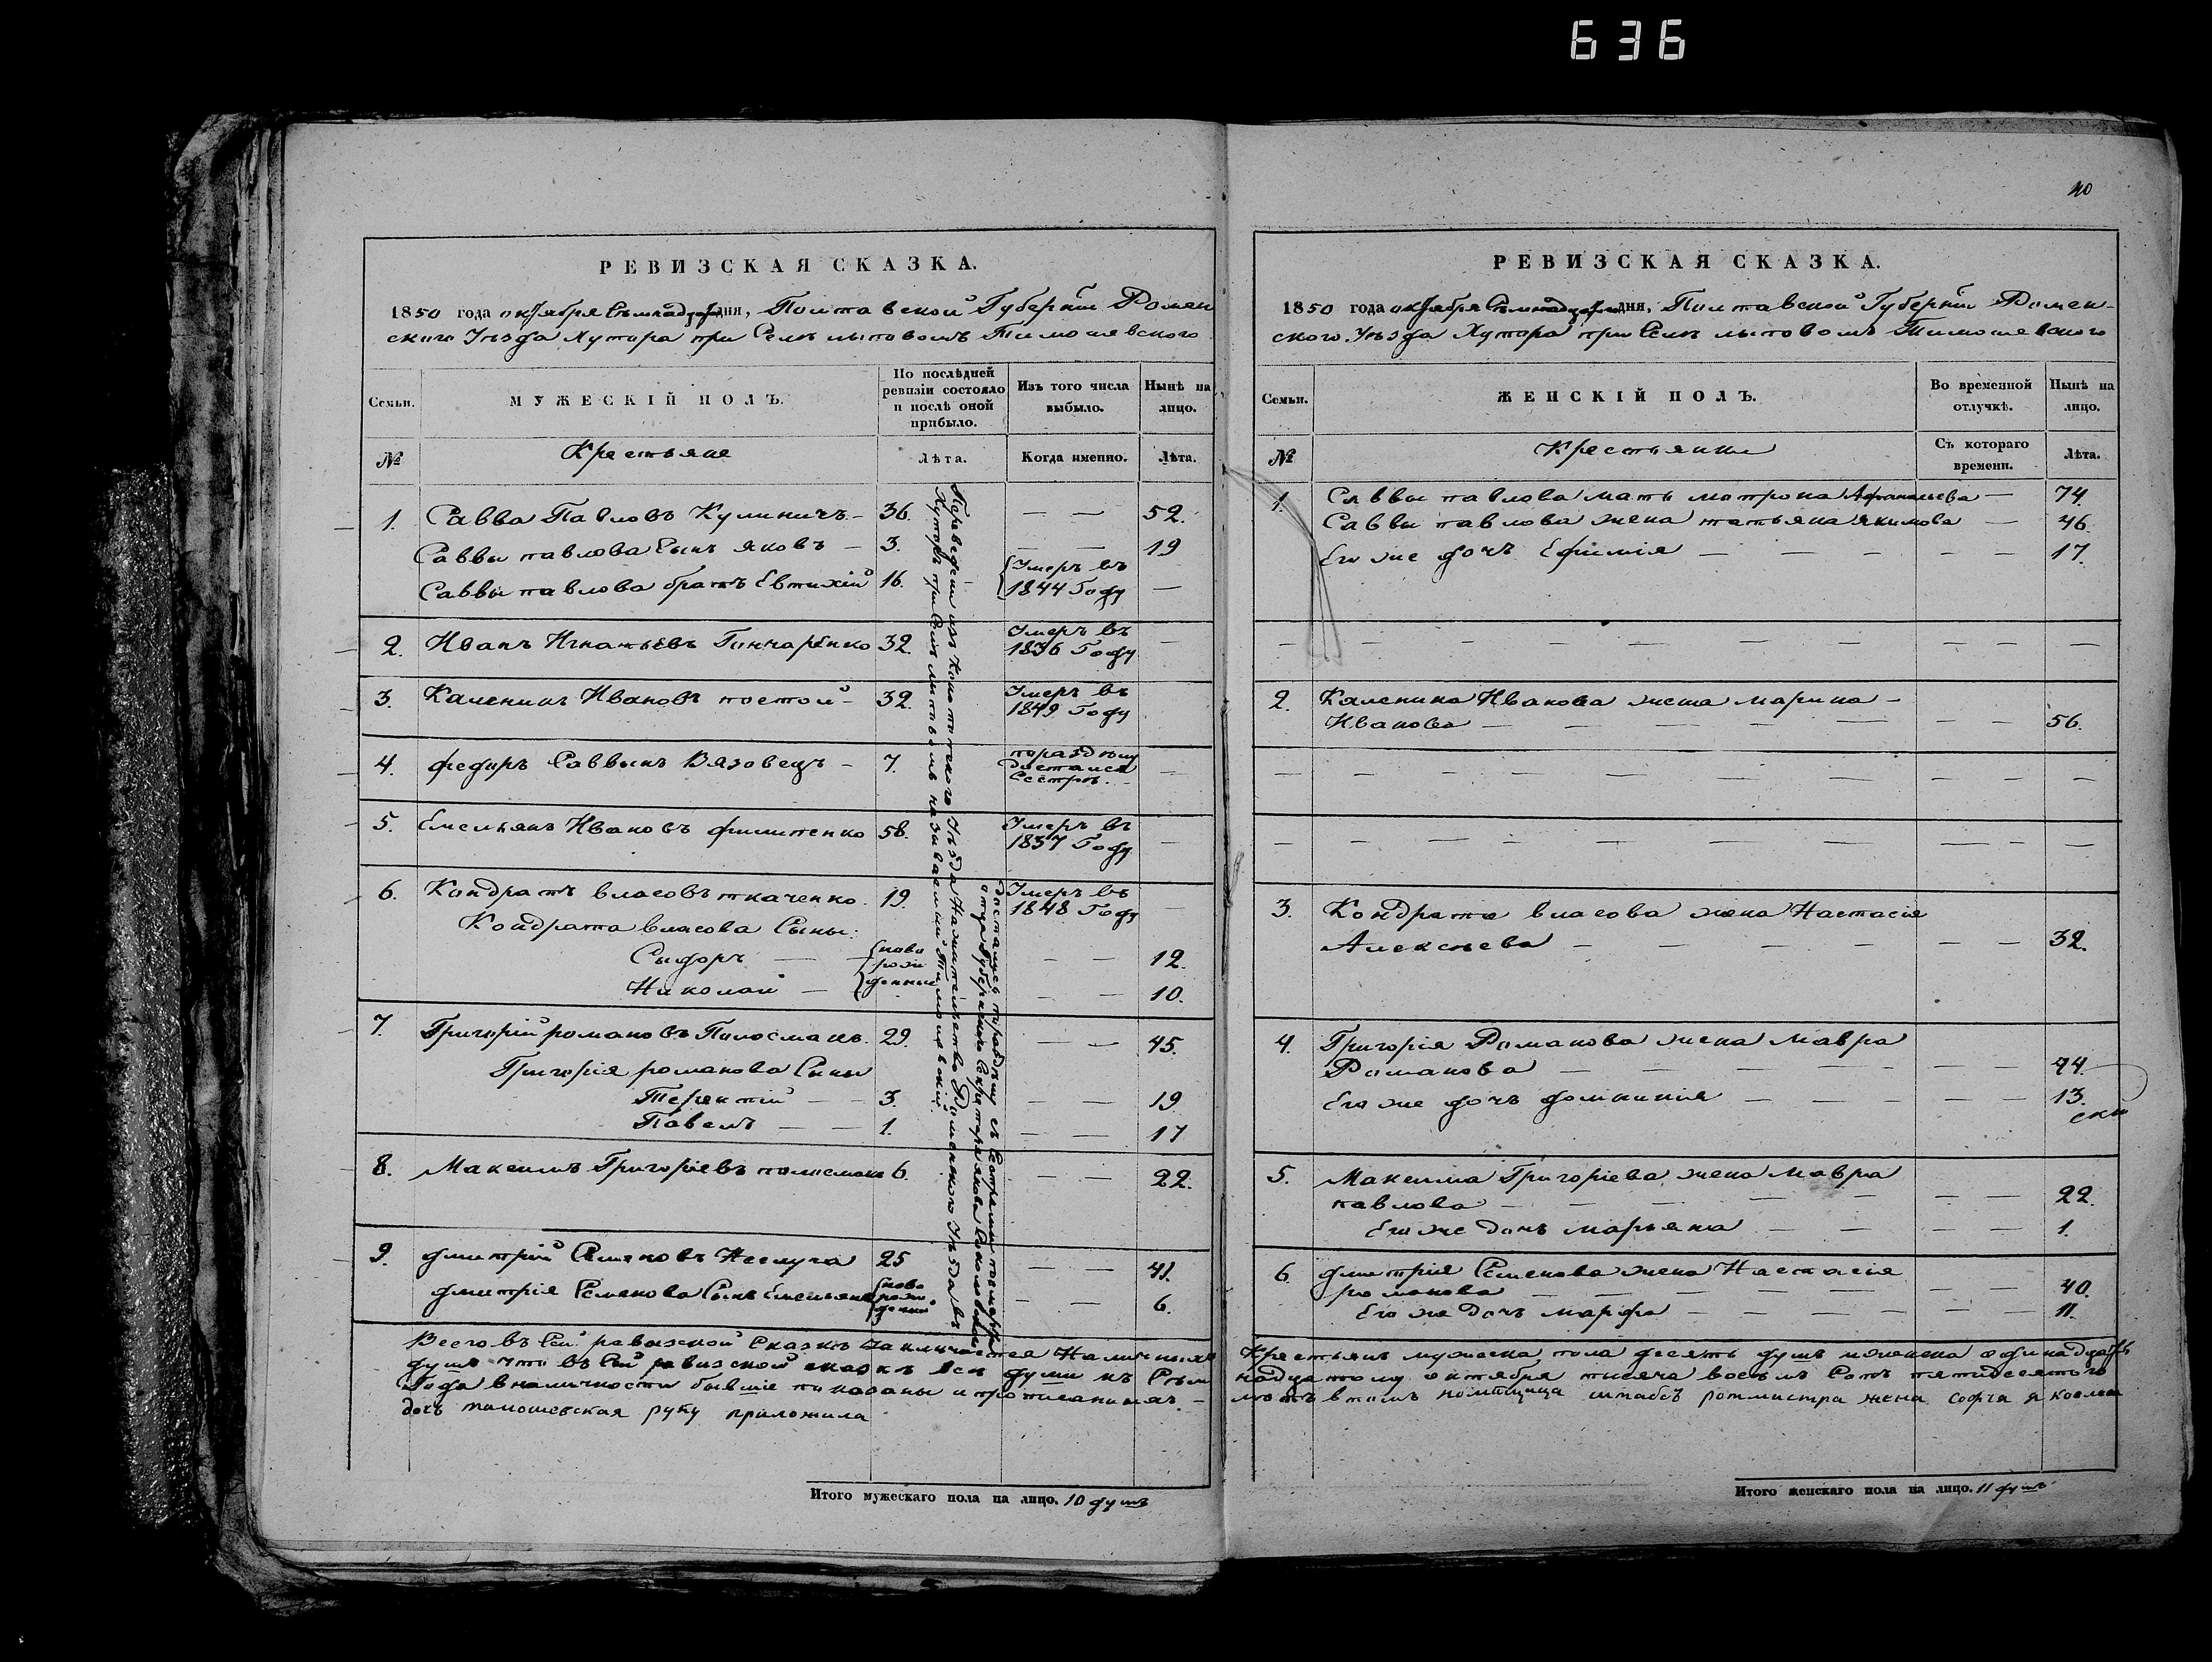 636
РЕВИЗСКАЯ СКАЗКА.
1850 года октября Семнадцатого дня, Полтавской Губерніи Ромен
ского Уѣзда Хутора при Селѣ Липовомъ Тимошевского
Семьи.
МУЖЕСКІЙ ПОЛЪ.
По послѣдней
ревизіи состояло
и послѣ оной
прибыло.
Изъ того числа
выбыло.
Нынѣ на
лицо.
№
Крестьяне
Лѣта.
Когда именно.
Лѣта.
1. Савва Павловъ Куличичъ – 36. — — 52.
Саввы павлова Сынъ яковъ – 3. — — 19
Саввы павлова братъ Евтихій 16. Умеръ въ
1844 Году —
2. Иванъ Игнатьевъ Гончаренко 32. Умеръ въ
1836 Году —
3. Каленикъ Ивановъ постой – 32. Умеръ въ
1849 Году
4. федоръ Саввинъ Вязовецъ – 7. поразделу
достался
Сестрѣ. —
5. Емельянъ Ивановъ филипенко 58. Умеръ въ
1837 Году —
6. Кондратъ власовъ ткаченко. 19. Умеръ въ
1848 Году —
Кондрата власова Сыны:
Сыдоръ — ново — — 12.
рож
Николай — денные — — 10.
7. Григорій романовъ Полосмакъ. 29. — — 45.
Григорія романова Сыны
Терентій — — 3. — — 19
Павелъ — — 1. — — 17
8. Максимъ Григоріевъ полосмакъ 6. — — 22.
9. дмитрій Семеновъ Неслуча 25 — — 41.
дмитрія Семенова Сынъ Емельянъ ново
рож
денный — — 6.
Переведени изъ Конотопского Уѣзда На жительство Роменского Уѣзда въ
Хуторъ при Селѣ Липовомъ называемый Тимошевскій.
Достались поразделу съ Сестрами послѣ
отца Губернского Секретаря якова
Всего въ Сей ревизской Сказкѣ заключается Наличныхъ
душъ что въ Сей ревизской сказкѣ всѣ души къ Семь
Года вналичности бывшіе показаны и прописанныхъ –
дочь тимошевская руку приложила
Итого мужескаго пола на лицо. 10 душъ
40
РЕВИЗСКАЯ СКАЗКА.
1850 года октября Семнадцатого дня, Полтавской Губерніи Ромен-
ского Уѣзда Хутора при Селѣ Липовомъ Тимошевского
Семьи.
ЖЕНСКІЙ ПОЛЪ.
Во временной
отлучкѣ.
Нынѣ на
лицо.
№
Крестьянки
Съ котораго
времени.
Лѣта.
1. Саввы павлова мать мотрона Афанасьева — 74.
Саввы павлова жена татьяна якимова — 46.
Его же дочь Ефимія — — — — — 17.
2. Каленика Иванова жена марина –
Иванова — — — — — 56.
3. Кондрата власова жена Настасія
Алексѣева — — — — — 32.
4. Григорія Романова жена мавра
Романова — — — — — 44.
Его же дочь домникія — — — — 13.
5. Максима Григоріева жена мавра
павлова — — — — — 22.
Его же дочь марьяна — — — — 1.
6. дмитрія Семенова жена Настасія
романова — — — — — 40.
Его же дочь марфа — — — — 11.
Крестьянъ мужеска пола десять душъ и женска одинадцать
надцатому октября тисяча восемъ Сотъ пятидесятого
втомъ помещица штабсъ ротмистра жена софія яковлева
Итого женскаго пола на лицо. 11 душъ